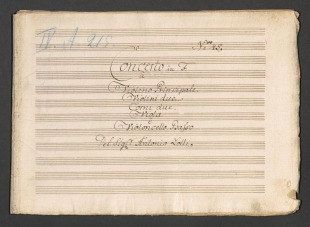 IV A 215
No 45.
Concerto in F
a
Violino Principale
Violini due
Corni due
Viola
e
Violoncello Basso
Del Sigr Antonio Lolli